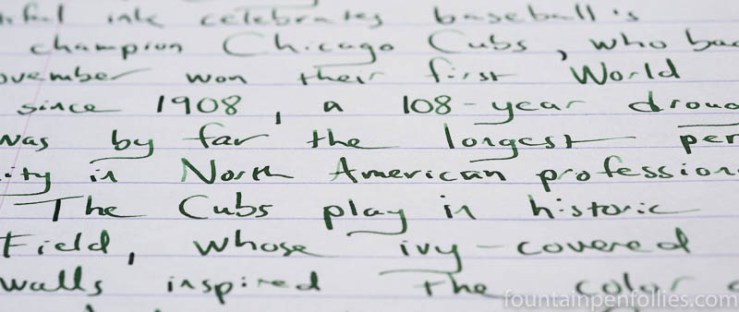 ink celebrates baseball's
champion Chicago Cubs, who bac
ovember won their first World
since 1908, a 108-year droug
was by far the longest per
ity in North American profession
The Cubs play in historic
Field, whose ivy-covered
walls inspired the color
fountainpenfollies.com